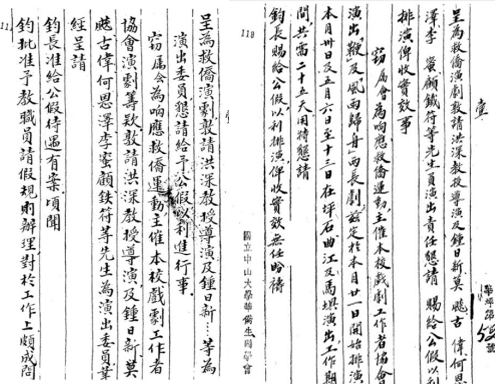 呈為救僑演劇敦請洪深教授導演及鍾日新莫 古 偉何思
澤李 顧鐵符等先生員演出責任懇請 賜給公假以利
排演俾收實效事
竊屬會為响應救僑運動主催本校戲劇工作者協會
演出「鞭」及「風雨歸舟」兩長劇茲定於本月廿一日開始排演
本月卅日及五月六日至十三日在坪石曲江及馬壩演出工作期
間共需二十五天用特懇請
鈞長賜給公假以利排演俾收實效無任盼禱
118
國立中山大學華僑生同學會
呈為救僑演劇敦請洪深教授導演及鍾日新…等為
演出委員懇請給予公假以利進行事
竊屬會為响應救僑運動主催本校戲劇工作者
協會演劇籌款敦請洪深教授導演及鍾日新莫
古偉何思澤李 顧鉄符等先生為演出委員業
經呈請
鈞長准給公假待遇有案頃聞
鈞批准予教職員請假規則辦理對於工作上頗成問